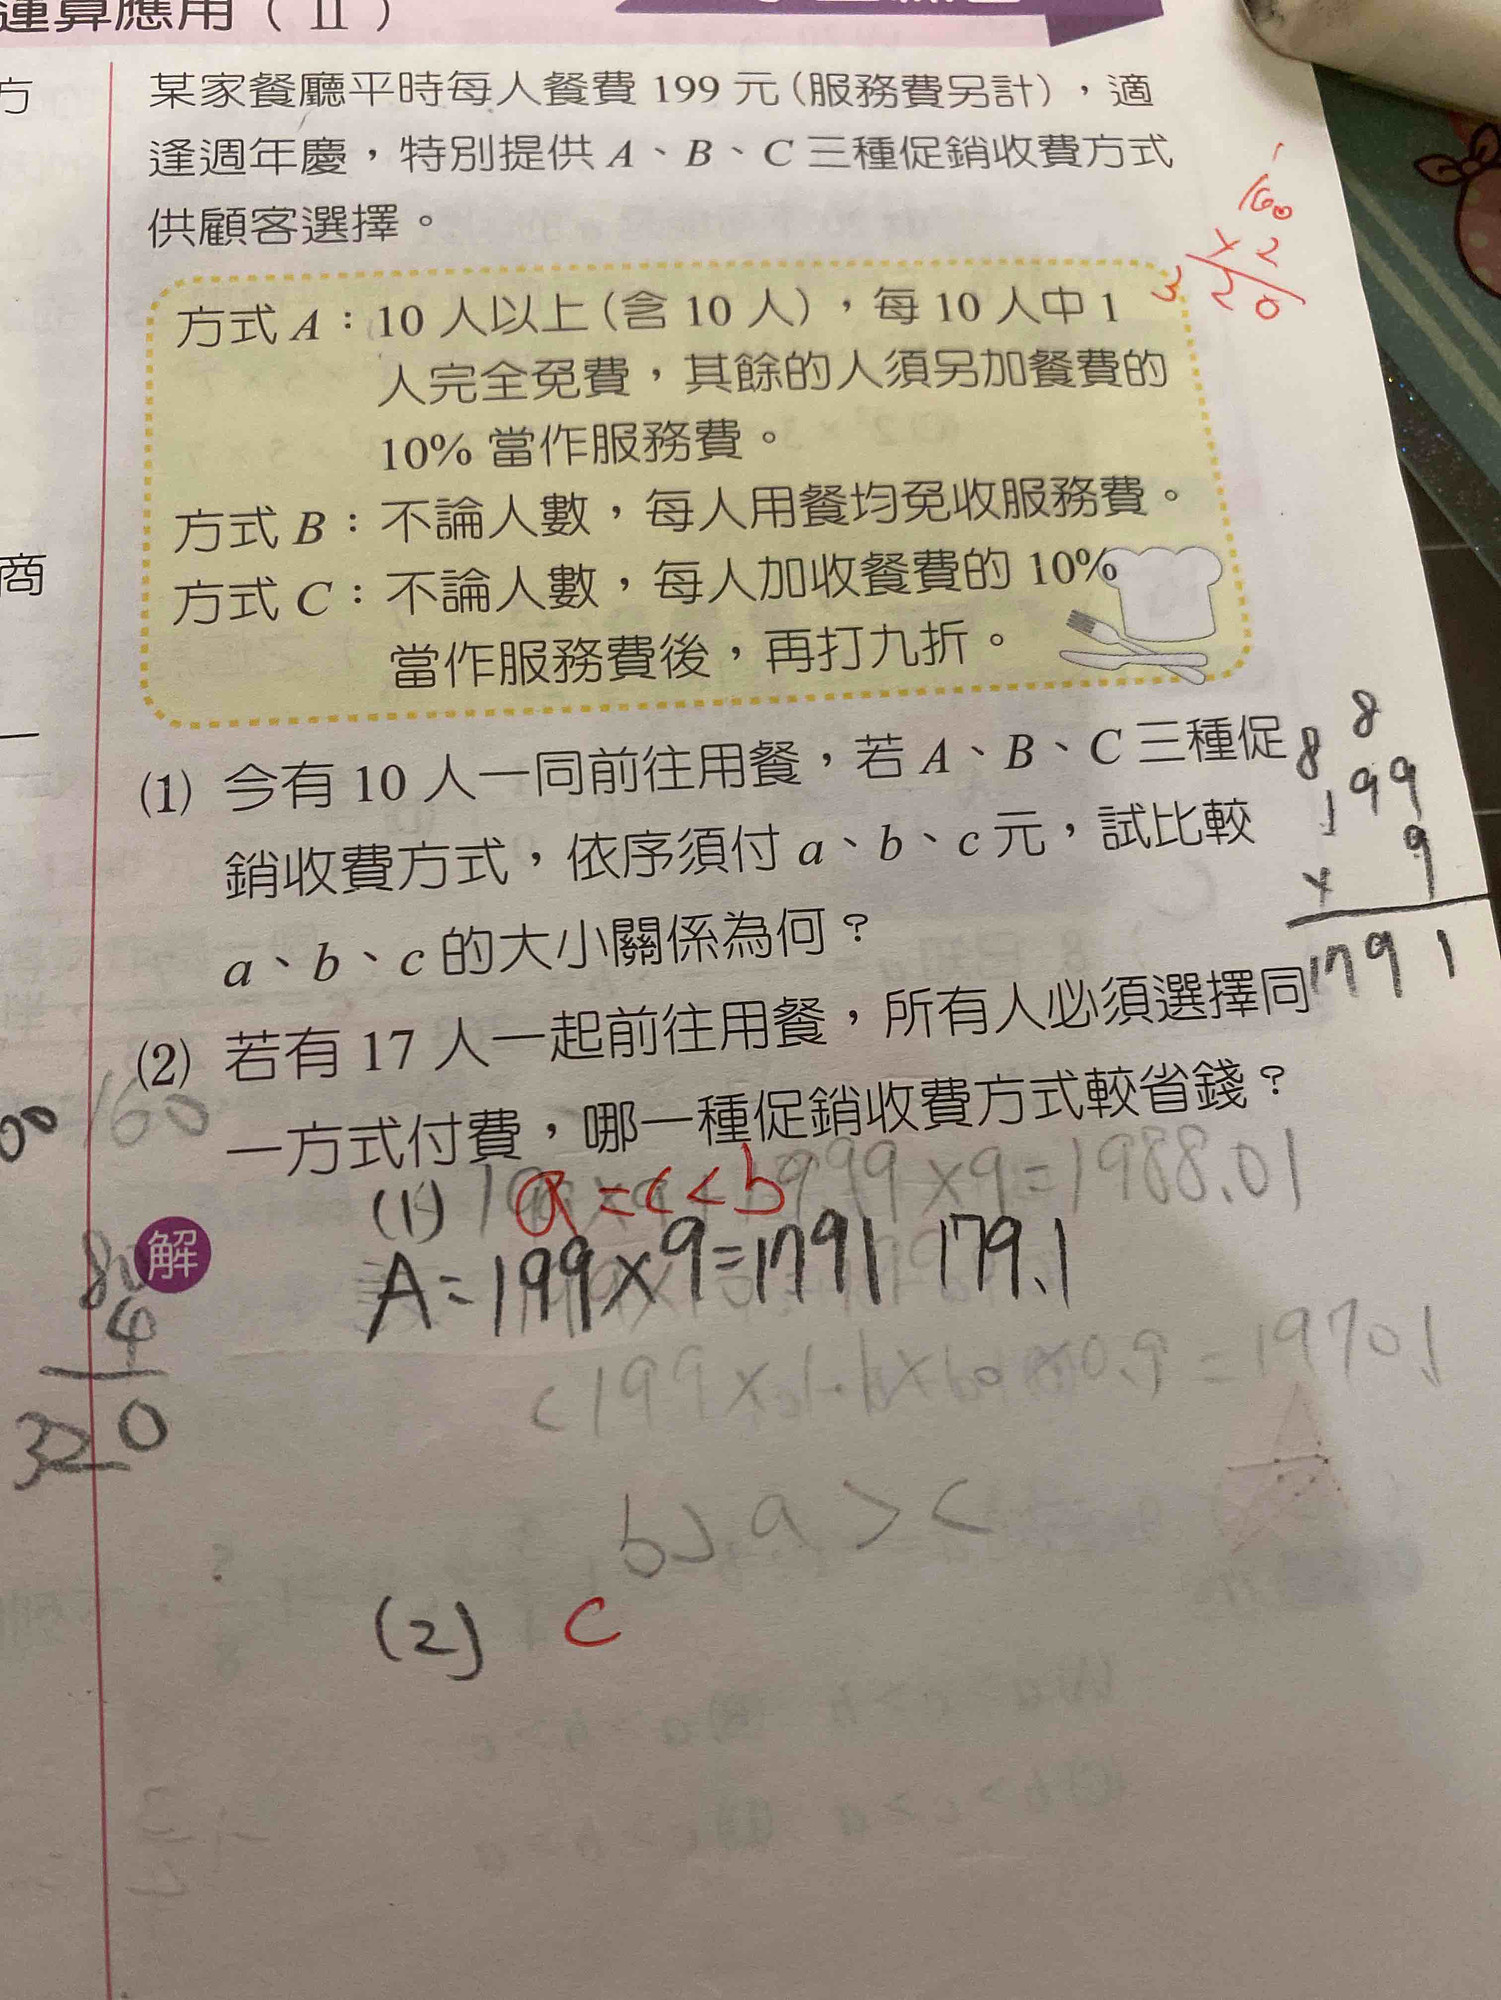 運算應用（Ⅱ）
方
某家餐廳平時每人餐費 199 元（服務費另計），適
逢週年慶，特別提供 A、B、C 三種促銷收費方式
供顧客選擇。
160
× 2
320
方式 A：10 人以上（含 10 人），每 10 人中 1
人完全免費，其餘的人須另加餐費的
10% 當作服務費。
方式 B：不論人數，每人用餐均免收服務費。
方式 C：不論人數，每人加收餐費的 10%
當作服務費後，再打九折。
商
(1) 今有 10 人一同前往用餐，若 A、B、C 三種促
銷收費方式，依序須付 a、b、c 元，試比較
a、b、c 的大小關係為何？
8 8
199
× 9
1791
(2) 若有 17 人一起前往用餐，所有人必須選擇同
一方式付費，哪一種促銷收費方式較省錢？
00 160
(1) a = c < b
×9=1988.01
解
A=199×9=1791 179.1
80
4
320
199×1.1×10×0.9=1970.1
b>a>c
(2) c